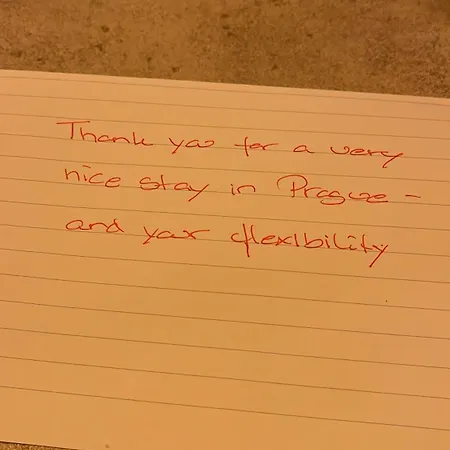 Thank you for a very
nice stay in Prague -
and your flexibility